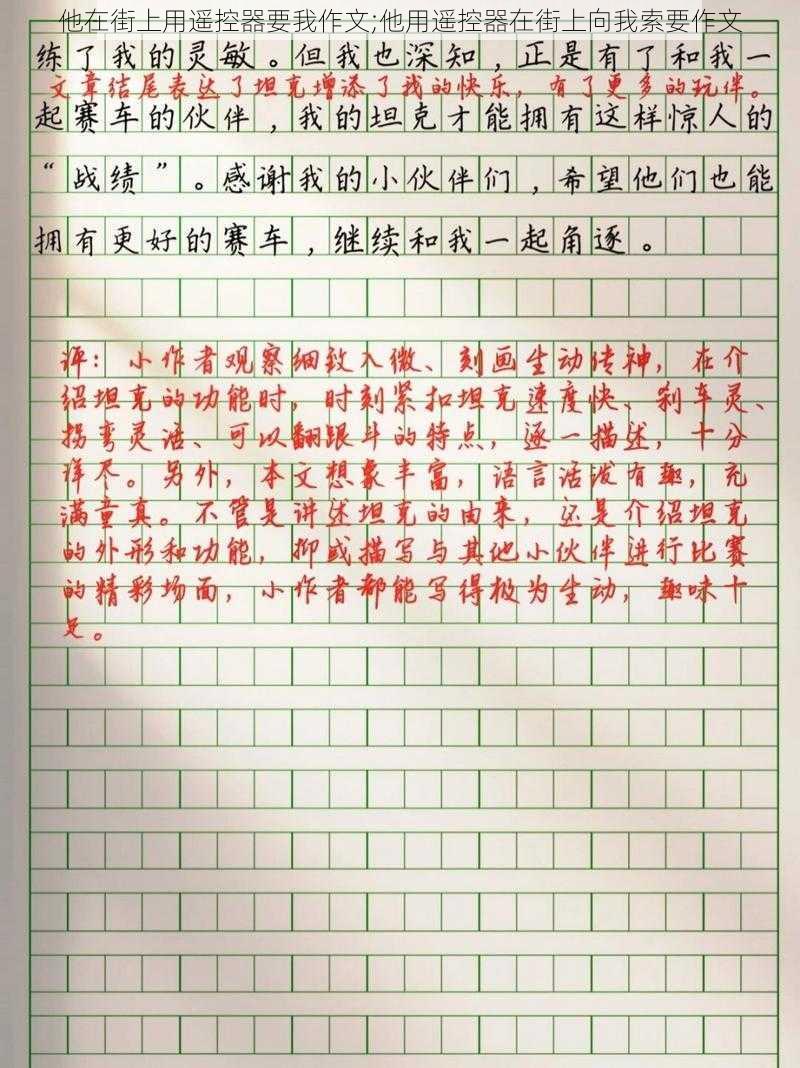 他在街上用遥控器要我作文;他用遥控器在街上向我索要作文
练了我的灵敏。但我也深知，正是有了和我一
文章结尾表达了坦克增添了我的快乐，有了更多的玩伴。
起赛车的伙伴，我的坦克才能拥有这样惊人的
“战绩”。感谢我的小伙伴们，希望他们也能
拥有更好的赛车，继续和我一起角逐。
评：小作者观察细致入微、刻画生动传神，在介
绍坦克的功能时，时刻紧扣坦克速度快、刹车灵、
拐弯灵活、可以翻跟斗的特点，逐一描述，十分
详尽。另外，本文想象丰富，语言活泼有趣，充
满童真。不管是讲述坦克的由来，还是介绍坦克
的外形和功能，抑或描写与其他小伙伴进行比赛
的精彩场面，小作者都能写得极为生动，趣味十
足。